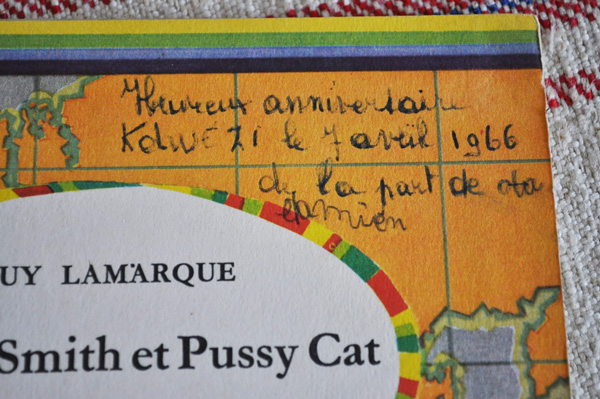 Heureux anniversaire
Kolwezi le 7 avril 1966
de la part de
damien
UY LAMARQUE
Smith et Pussy Cat